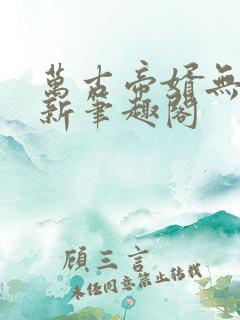 萬古帝婿無
新筆趣閣
顧三言
未經同意禁止轉載